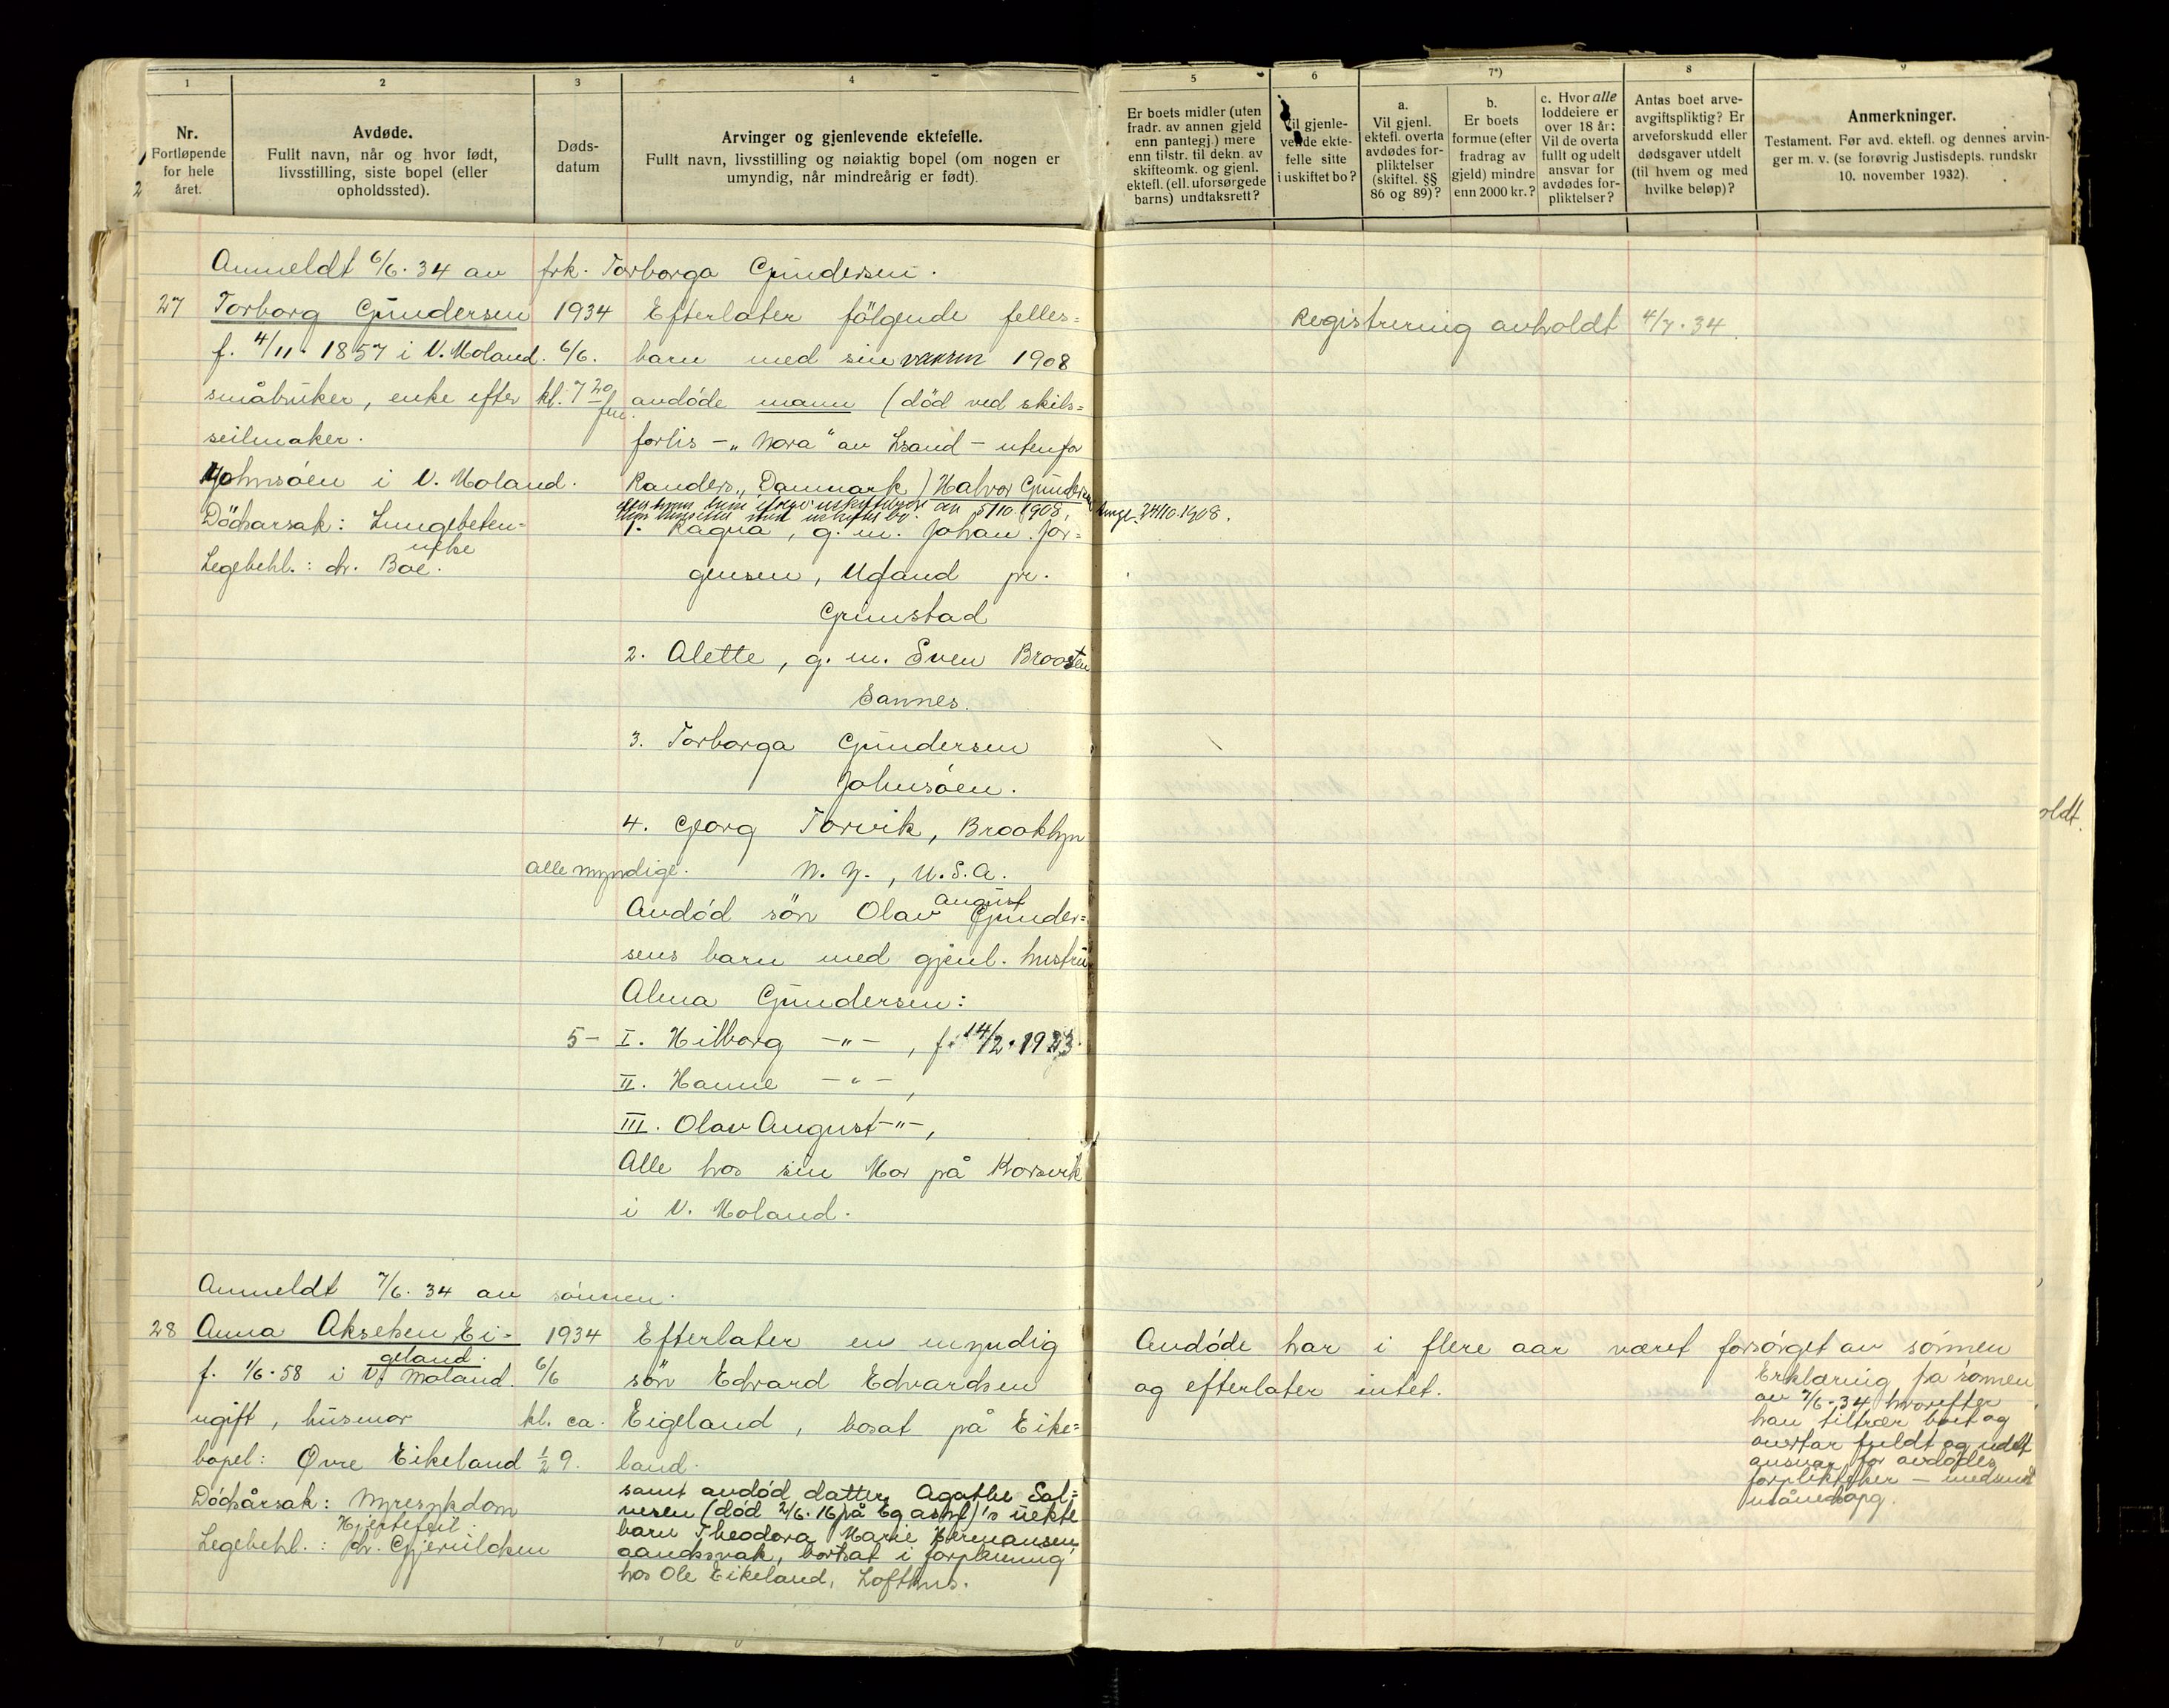 1
Nr.
Fortløpende
for hele
året.
2
Avdøde.
Fullt navn, når og hvor født,
livsstilling, siste bopel (eller
opholdssted).
3
Døds-
datum
4
Arvinger og gjenlevende ektefelle.
Fullt navn, livsstilling og nøiaktig bopel (om nogen er
umyndig, når mindreårig er født).
5
Er boets midler (uten
fradr. av annen gjeld
enn pantegj.) mere
enn tilstr. til dekn. av
skifteomk. og gjenl.
ektefl. (ell. uforsørgede
barns) undtaksrett?
6
Vil gjenle-
vende ekte-
felle sitte
i uskiftet bo?
7*)
a.
Vil gjenl.
ektefl. overta
avdødes for-
pliktelser
(skiftel. §§
86 og 89)?
b.
Er boets
formue (efter
fradrag av
gjeld) mindre
enn 2000 kr.?
c. Hvor alle
loddeiere er
over 18 år:
Vil de overta
fullt og udelt
ansvar for
avdødes for-
pliktelser?
8
Antas boet arve-
avgiftspliktig? Er
arveforskudd eller
dødsgaver utdelt
(til hvem og med
hvilke beløp)?
9
Anmerkninger.
Testament. Før avd. ektefl. og dennes arvin-
ger m. v. (se forøvrig Justisdepts. rundskr
10. november 1932).
Anmeldt 6/6. 34 av frk. Torborga Gundersen.
27 Torborg Gundersen 1934 Efterlater følgende felles=
f. 4/11. 1857 i V. Moland. 6/6. barn med sin 1908
småbruker, enke efter kl. 7 20 fm. avdøde mann (död ved skibs=
seilmaker. forlis - "Nora" av - utenfor
Johnsöen i V. Moland. Randers, Danmark) Halvor Gundersen
av 5/10. 1908, tingl. 24/10. 1908.
Dödsarsak: Lungebeten-
nelse
Legebehl.: dr. Boe.
1. Ragna, g. m. Johan Jör=
gensen, Ufjand pr.
Grimstad
2. Alette, g. m. Sven Broosten
Sannes.
3. Torborga Gundersen
Johnsöen.
4. Georg Torvik, Brooklyn
alle myndige. N. Y., U.S.A.
Avdöd sön Olav August Gunder=
sens barn med gjenl. hustru
Alma Gundersen:
5- I. Hilborg -"-, f. 14/2. 1923
II. Hanne -"-,
III. Olav August -"-,
Alle hos sin Mor på Korsvik
i V. Moland.
Registrering avholdt 4/7. 34.
Anmeldt 7/6. 34 av sönnen.
28 Anna Akselsen Ei= 1934 Efterlater en myndig
geland.
f. 1/6. 58 i V. Moland. 6/6 sön Edvard Edvardsen
ugift, husmor kl. ca. Eigeland, bosat på Eike=
bopel: Øvre Eikeland ½ 9. land.
Dödsårsak: Nyresykdom
Hjertefeil.
Legebehl.: dr. Gjeruldsen
samt avdöd datter Agathe Sal=
vesen (död 2/6. 16 på Eg asyl)'s uekte
barn Theodora Marie Hermansen
aandssvak, bortsat i forpleining
hos Ole Eikeland, Lofthus.
Avdöde har i flere aar været forsörget av sönnen
og efterlater intet.
Erklæring fra sönnen
av 7/6. 34, hvorefter
han tiltrær boet og
overtar fuldt og udelt
ansvar for avdødes
forpliktelser - medundt
oldt.